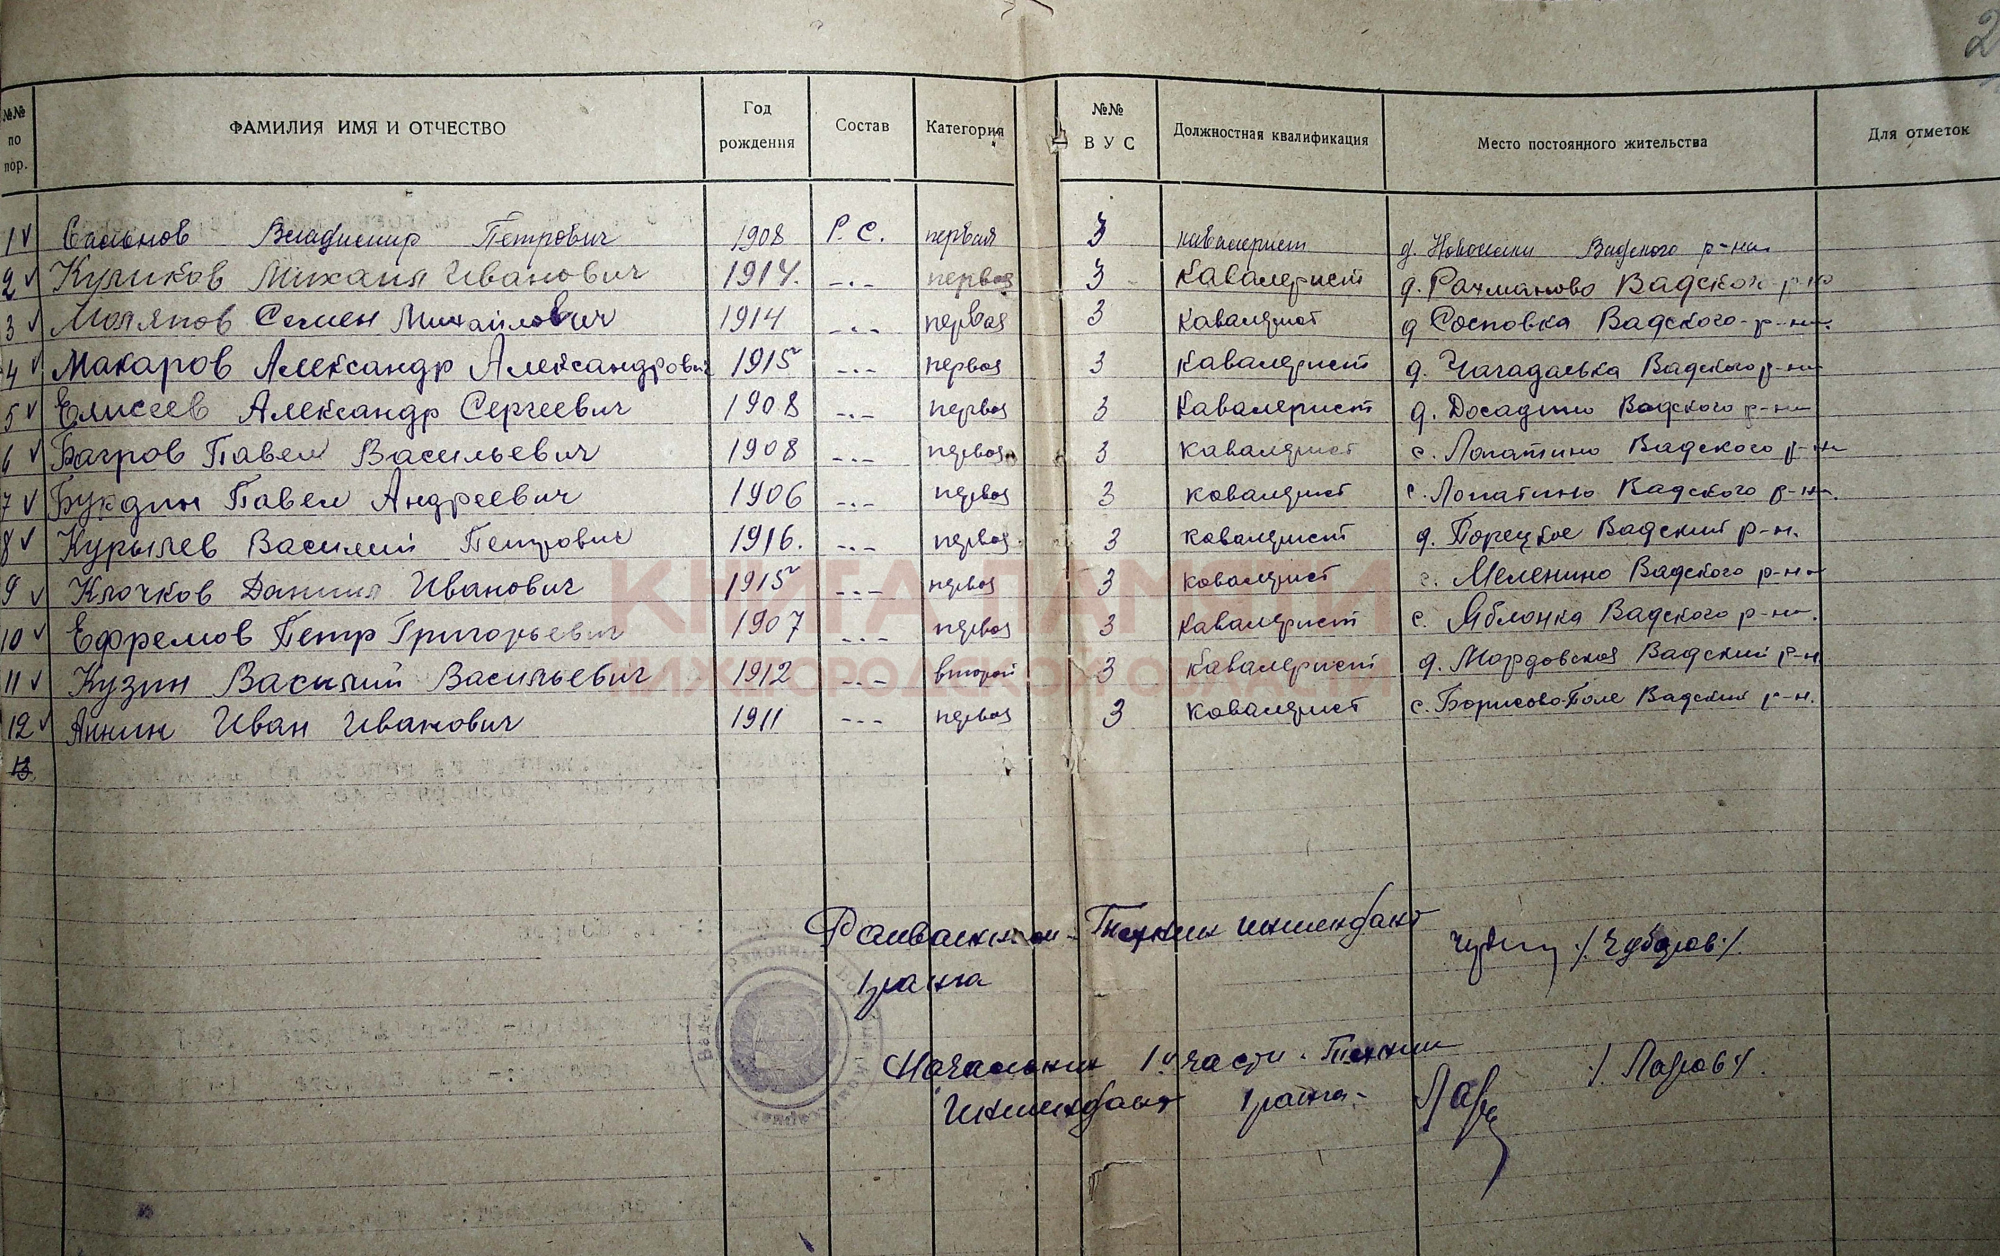 2
№№ по пор. ФАМИЛИЯ ИМЯ И ОТЧЕСТВО Год рождения Состав Категория №№ ВУС Должностная квалификация Место постоянного жительства Для отметок
1 Сальнов Владимир Петрович 1908 Р.С. первая 3 кавалерист д. Новоселки Вадского р-на
2 Куликов Михаил Иванович 1914. -"- первая 3 Кавалерист д. Рахманово Вадского р-на
3 Семен Михайлович 1914 -"- первая 3 Кавалерист д Сосновка Вадского р-на.
4 Макаров Александр Александрович 1915 -"- первая 3 Кавалерист д. Вадского р-на
5 Елисеев Александр Сергеевич 1908 -"- первая 3 Кавалерист д. Досадино Вадского р-на
6 Багров Павел Васильевич 1908 -"- первая 3 кавалерист с. Лопатино Вадского р-на
7 Букдин Павел Андреевич 1906 -"- первая 3 кавалерист с. Лопатино Вадского р-на.
8 Курылев Василий Петрович 1916. -"- первая 3 кавалерист д. Порецкое Вадский р-н.
9 Клочков Даниил Иванович 1915 -"- первая 3 кавалерист с. Меленино Вадского р-на
10 Ефремов Петр Григорьевич 1907 -"- первая 3 Кавалерист с. Яблонка Вадского р-на.
11 Кузин Василий Васильевич 1912 -"- второй 3 Кавалерист д. Мордовская Вадский р-н
12 Аннин Иван Иванович 1911 -"- первая 3 кавалерист с. Борисово-Поле Вадский р-н.
13
КНИГА ПАМЯТИ
НИЖГОРОДСКОЙ ОБЛАСТИ
Райвоенком - Техник интендант /. Чубаров./
1 ранга
Начальник 1й части - Техник
Интендант 1 ранга - /. Лавров /.